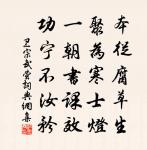 本從腐草生
聚為寒士燈
一朝書課效
功寧不汝矜
卫宗武萤詞典網集